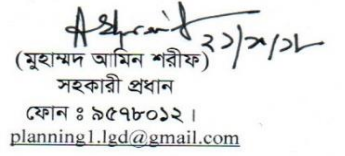 (মুহাম্মদ আমিন শরীফ)
সহকারী প্রধান
ফোন ঃ ৯৫৭৮০১২।
planning1.lgd@gmail.com